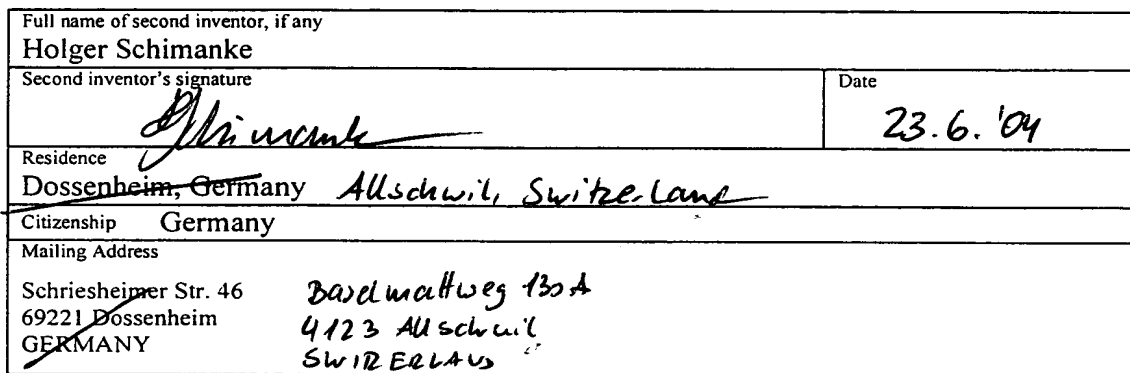 Full name of second inventor, if any
Holger Schimanke
Second inventor's signature
Date
Schimanke
23.6.'04
Residence
Dossenheim, Germany Allschwil, Switzerland
Citizenship Germany
Mailing Address
Schriesheimer Str. 46
69221 Dossenheim
GERMANY
Baselmattweg 130A
4123 Allschwil
SWITZERLAND